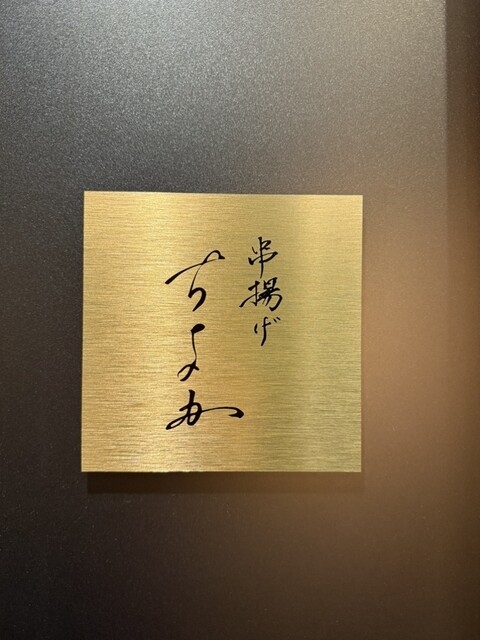 串揚げ
ちょか